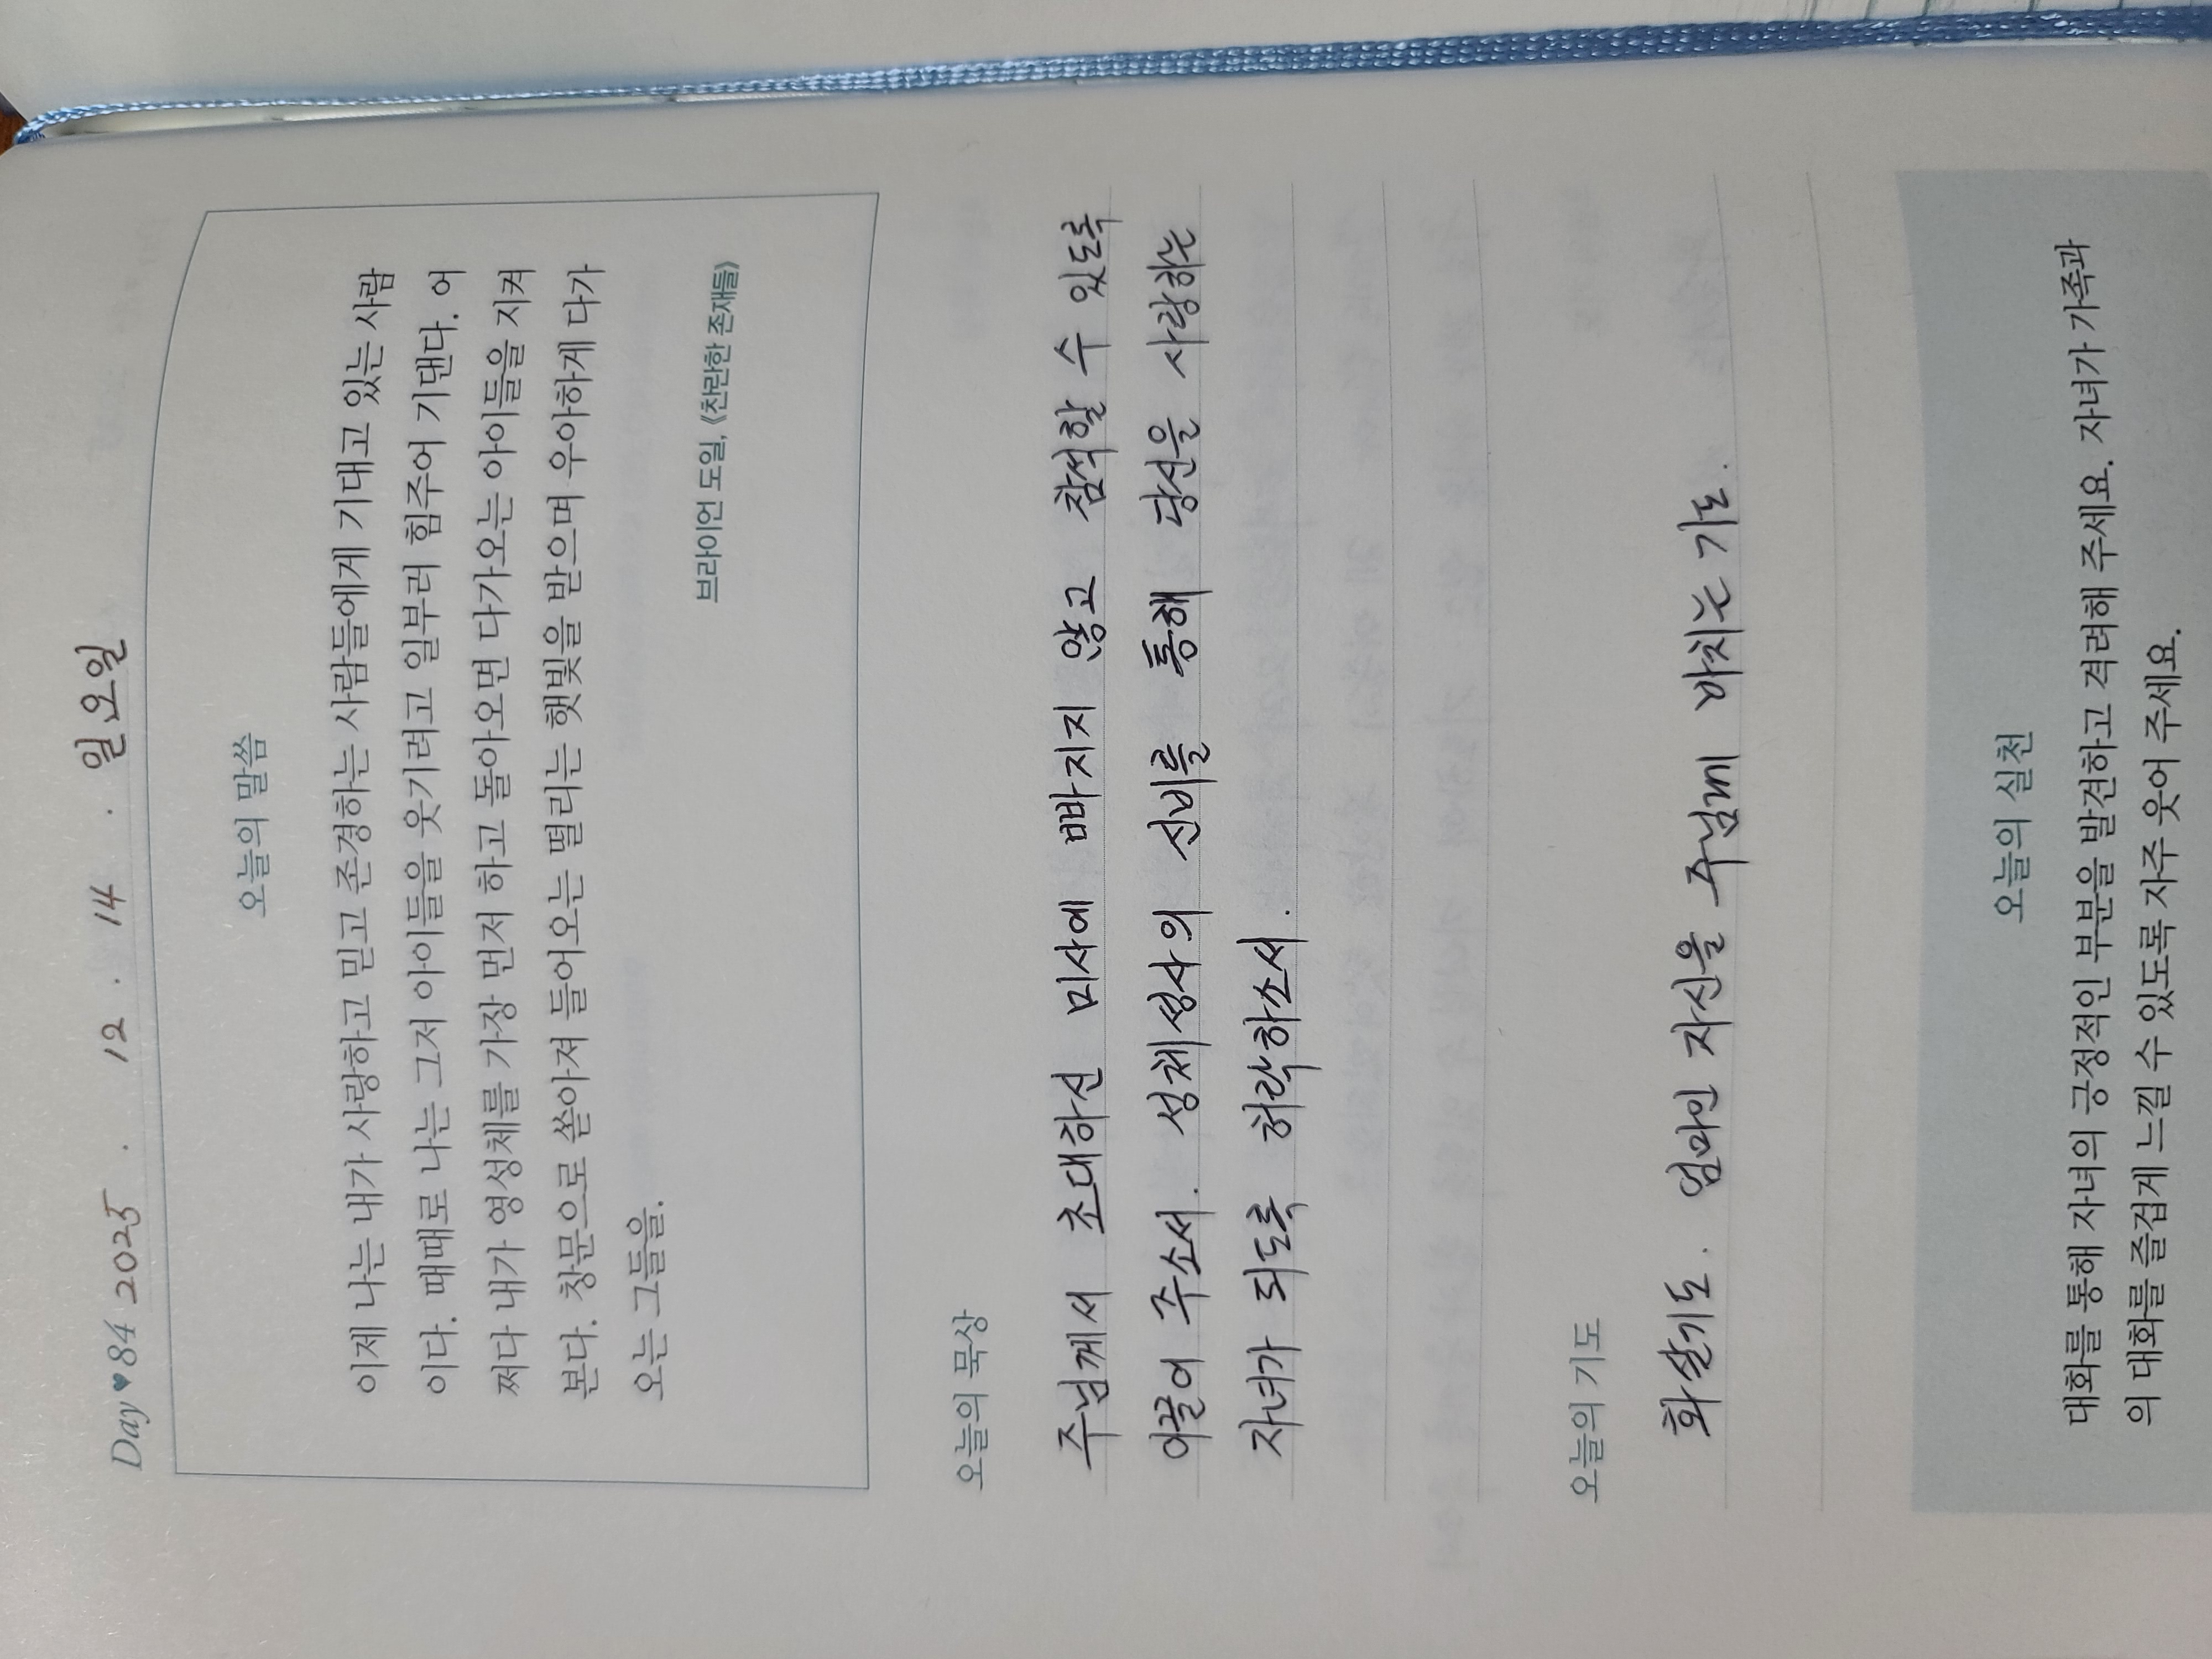 Day ♥ 84 2025 . 12 . 14 . 일요일
오늘의 말씀
이제 나는 내가 사랑하고 믿고 존경하는 사람들에게 기대고 있는 사람
이다. 때때로 나는 그저 아이들을 웃기려고 일부러 힘주어 기댄다. 어
쩌다 내가 영성체를 가장 먼저 하고 돌아오면 다가오는 아이들을 지켜
본다. 창문으로 쏟아져 들어오는 떨리는 햇빛을 받으며 우아하게 다가
오는 그들을.
브라이언 도일, 《찬란한 존재들》
오늘의 묵상
주님께서 초대하신 미사에 빠지지 않고 참석할 수 있도록
이끌어 주소서. 성체성사의 신비를 통해 당신을 사랑하는
자녀가 되도록 허락하소서.
오늘의 기도
화살기도. 엄마인 자신을 주님께 바치는 기도.
오늘의 실천
대화를 통해 자녀의 긍정적인 부분을 발견하고 격려해 주세요. 자녀가 가족과
의 대화를 즐겁게 느낄 수 있도록 자주 웃어 주세요.